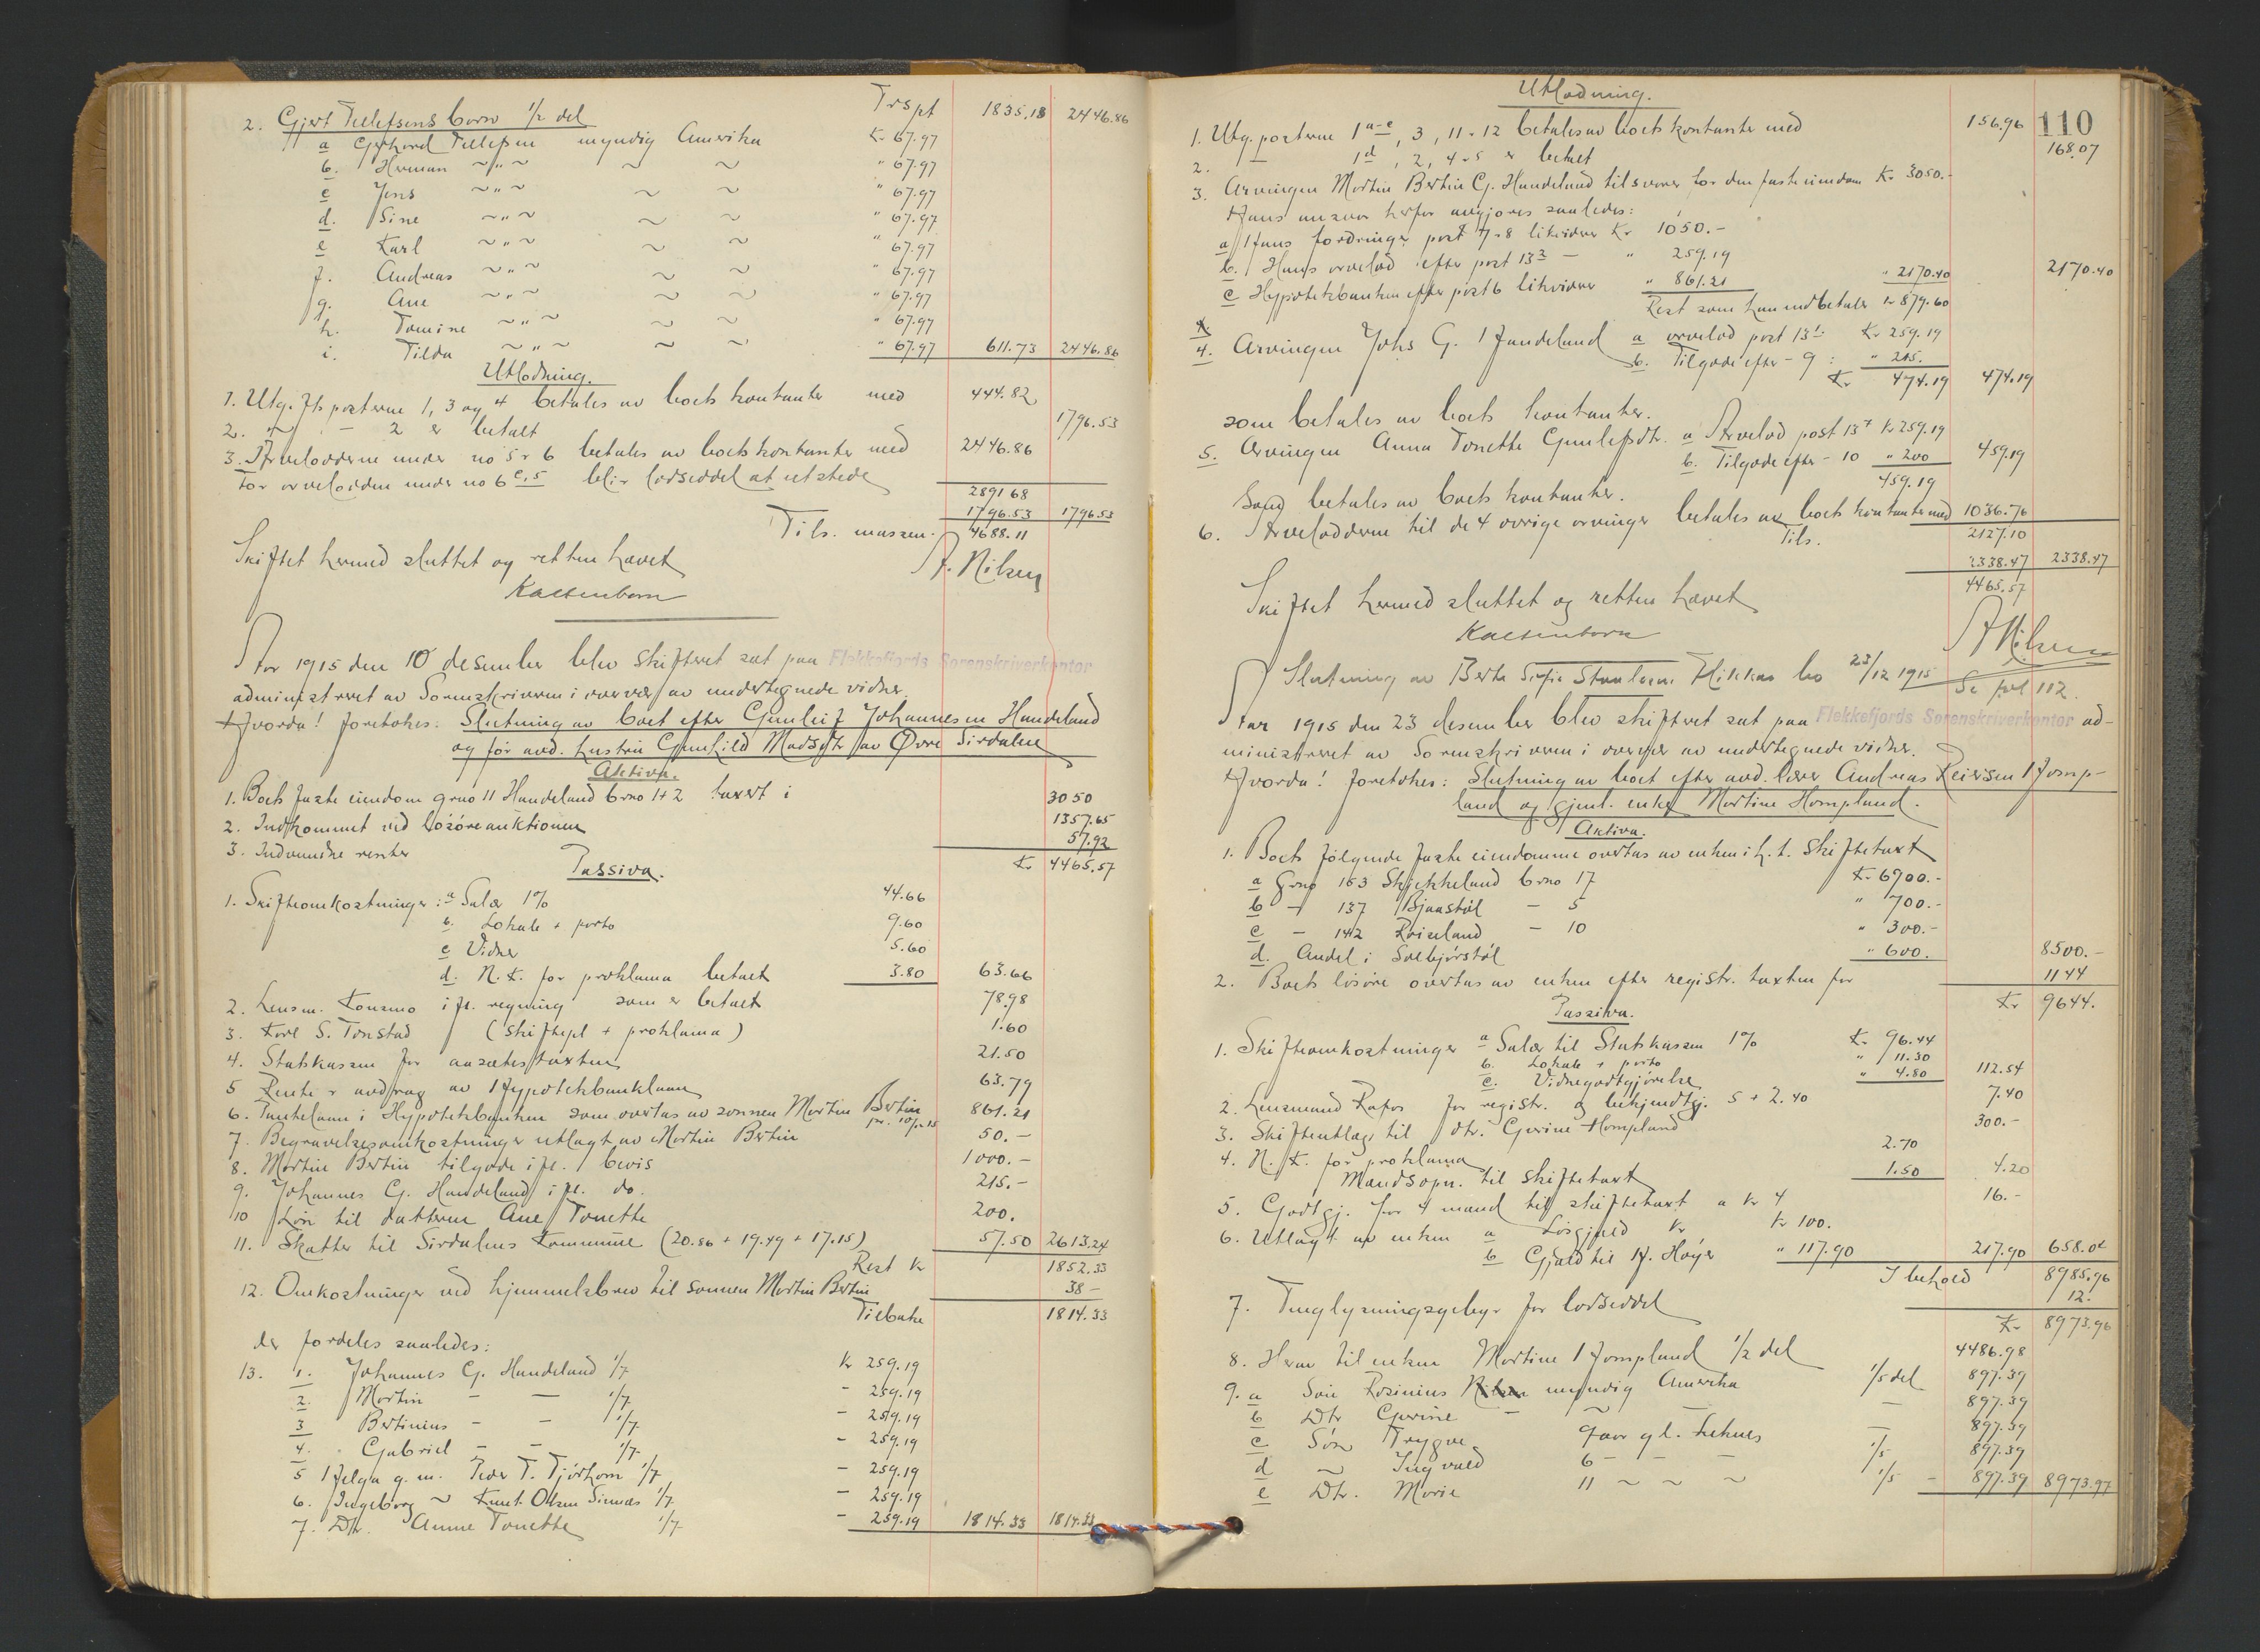 Trspt 1835.13 2446.86
2. Gjert Tellefsens børn 1/2 del
a Gerhard Tellefsen myndig Amerika Kr 67.97
b. Herman ~"~ ~ ~ " 67.97
c Jens ~"~ ~ ~ " 67.97
d. Sine ~"~ ~ ~ " 67.97
e Karl ~"~ ~ ~ " 67.97
f. Andreas ~"~ ~ ~ " 67.97
g. Ane ~"~ ~ ~ " 67.97
h. Tomine ~"~ ~ ~ " 67.97
i. Tilda ~"~ ~ ~ " 67.97 611.73 2446.86
Utlodning.
1. Utg. ft posterne 1, 3 og 4 betales av boets kontanter med 444.82
2. - 2 er betalt 1796.53
3. Arvelodderne under no 5 & 6 betales av boets kontanter med 2446.86
For arvelodden under no 6 blir lodseddel at utstede
2891.68
1796.53 1796.53
Tils. massen. 4688.11
Skiftet hermed sluttet og retten hævet
A. Nilsen
Kaltenborn
Aar 1915 den 10 desember blev skifteret sat paa Flekkefjords Sorenskriverkontor
administreret av Sorenskriveren i overvær av undertegnede vidner.
Hvorda! foretokes: Slutning av boet efter Gunleif Johannesen Handeland
og før avd. hustru Gunhild Madsdtr av Øvre Sirdalen
Aktiva.
1. Boets faste eiendom grno 11 Handeland brno 1+2 taxert i 3050
2. Indkommet ved løsøreauktionen 1357.65
3. Indvundne renter 57.92
Kr 4465.57
Passiva.
1. Skifteomkostninger: a Salær 1% 44.66
b. Lokale + porto 9.60
c Vidner 5.60
d. N. K. for proklama betalt 3.80 63.66
2. Lensm. Konsmo ifl. regning som er betalt 78.98
3. Tore S. Tonstad (skiftepl + proklama) 1.60
4. Statskassen for ansættelsestaxten 21.50
5 Rente & avdrag av Hypotekbanklaan 63.79
6. Pantelaan i Hypotekbanken som overtas av sønnen Martin Bertin 861.21
7. Begravelsesomkostninger utlagt av Martin Bertin 50.-
8. Martin Bertin tilgode ifl. bevis 1000.-
9. Johannes G. Handeland ifl. do. 215.-
10 Løn til datteren Ane Tonette 200.
11. Skatter til Sirdalens Kommune (20.86 + 19.49 + 17.15) 57.50 2613.24
Rest kr 1852.33
12. Omkostninger ved hjemmelsbrev til sønnen Martin Bertin 38 -
Tilbake 1814.33
der fordeles saaledes:
13. 1. Johannes G. Handeland 1/7 Kr 259.19
2. Martin - - 1/7 - 259.19
3 Bertinius - - 1/7 - 259.19
4. Gabriel - - 1/7 - 259.19
5 Helga g. m. Peder T. Tjørhom 1/7 - 259.19
6. Ingeborg ~ Knut Olsen Sinnes 1/7 - 259.19
7. Dtr. Anne Tonette 1/7 - 259.19 1814.33 1814.33
110
Utlodning.
1. Utg. posterne 1 a-c, 3, 11 & 12 betales av boets kontanter med 156.96
2. 1 d, 2, 4 & 5 er betalt 168.07
3. Arvingen Martin Bertin G. Handeland tilsvarer for den faste eiendom Kr 3050.-
Hans ansvar herfor avgjøres saaledes:
a/ Hans fordringer post 7 & 8 likviderer Kr 1050.-
b. Hans arvelod efter post 13 2 - " 259.19
c Hypotekbanken efter post 6 likviderer " 861.21 " 2170.40 2170.40
Rest som han indbetaler kr 879.60
4. Arvingen Johs G. Handeland a arvelod post 13 1: Kr 259.19
b. Tilgode efter - 9 : " 215.
Kr 474.19 474.19
som betales av boets kontanter.
5. Arvingen Anna Tonette Gunleifsdtr. a Arvelod post 13 7 Kr 259.19
b. Tilgode efter - 10 " 200 459.19
459.19
Som betales av boets kontanter.
6. Arvelodderne til de 4 øvrige arvinger betales av boets kontanter med 1036.76
Tils. 2127.10
2338.47 2338.47
4465.57
Skiftet hermed sluttet og retten hævet
Kaltenborn
A Nilsen
Slutning av Berta Sofie Staalesen Hikkas bo 23/12 1915 Se fol 112.
Aar 1915 den 23 desember blev skifteret sat paa Flekkefjords Sorenskriverkontor ad-
ministreret av Sorenskriveren i overvær av undertegnede vidner.
Hvorda! foretokes: Slutning av boet efter avd. lærer Andreas Reiersen Homp-
land og gjenl. enke Martine Hompland.
Aktiva.
1. Boets følgende faste eiendomme overtas av enken i h. t. skiftetaxt
a Grno 153 Skjekkeland brno 17 Kr 6900.-
b - 137 Bjaastøl - 5 " 700.-
c - 142 Røiseland - 10 " 300.-
d. Andel i Solbjørstøl " 600. 8500.-
2. Boets løsøre overtas av enken efter registr. taxten for 1144
Kr 9644.
Passiva.
1. Skifteomkostninger a Salær til Statskassen 1% Kr 96.44
b. Lokale + porto " 11.30
c. Vidnegodtgjørelse " 4.80 112.54
2. Lensmand Rafos for registr. og bekjendtgj. 5 + 2.40 7.40
3. Skifteutlæg til dtr. Gverine Hompland 300.-
4. N. K. for proklama 2.70
Mandsopn. til skiftetaxt 1.50 4.20
5. Godtgj. for 4 mand til skiftetaxt a kr 4 16.-
6. Utlagt av enken a Løsgjæld Kr Kr 100.
b Gjæld til H. Høyer " 117.90 217.90 658.04
I behold 8985.96
7. Tinglysningsgebyr for lodseddel 12.
Kr 8973.96
8. Herav til enken Martine Hompland 1/2 del 4486.98
9. a Søn Rosinius myndig Amerika 1/5 del 897.39
b Dtr Gverine - ~ - 897.39
c Søn Trygve 9 aar gl. hehues - 897.39
d ~ Ingvald 6 - - - 1/5 897.39
e Dtr. Marie 11 ~ ~ ~ 1/5 - 897.39 8973.97